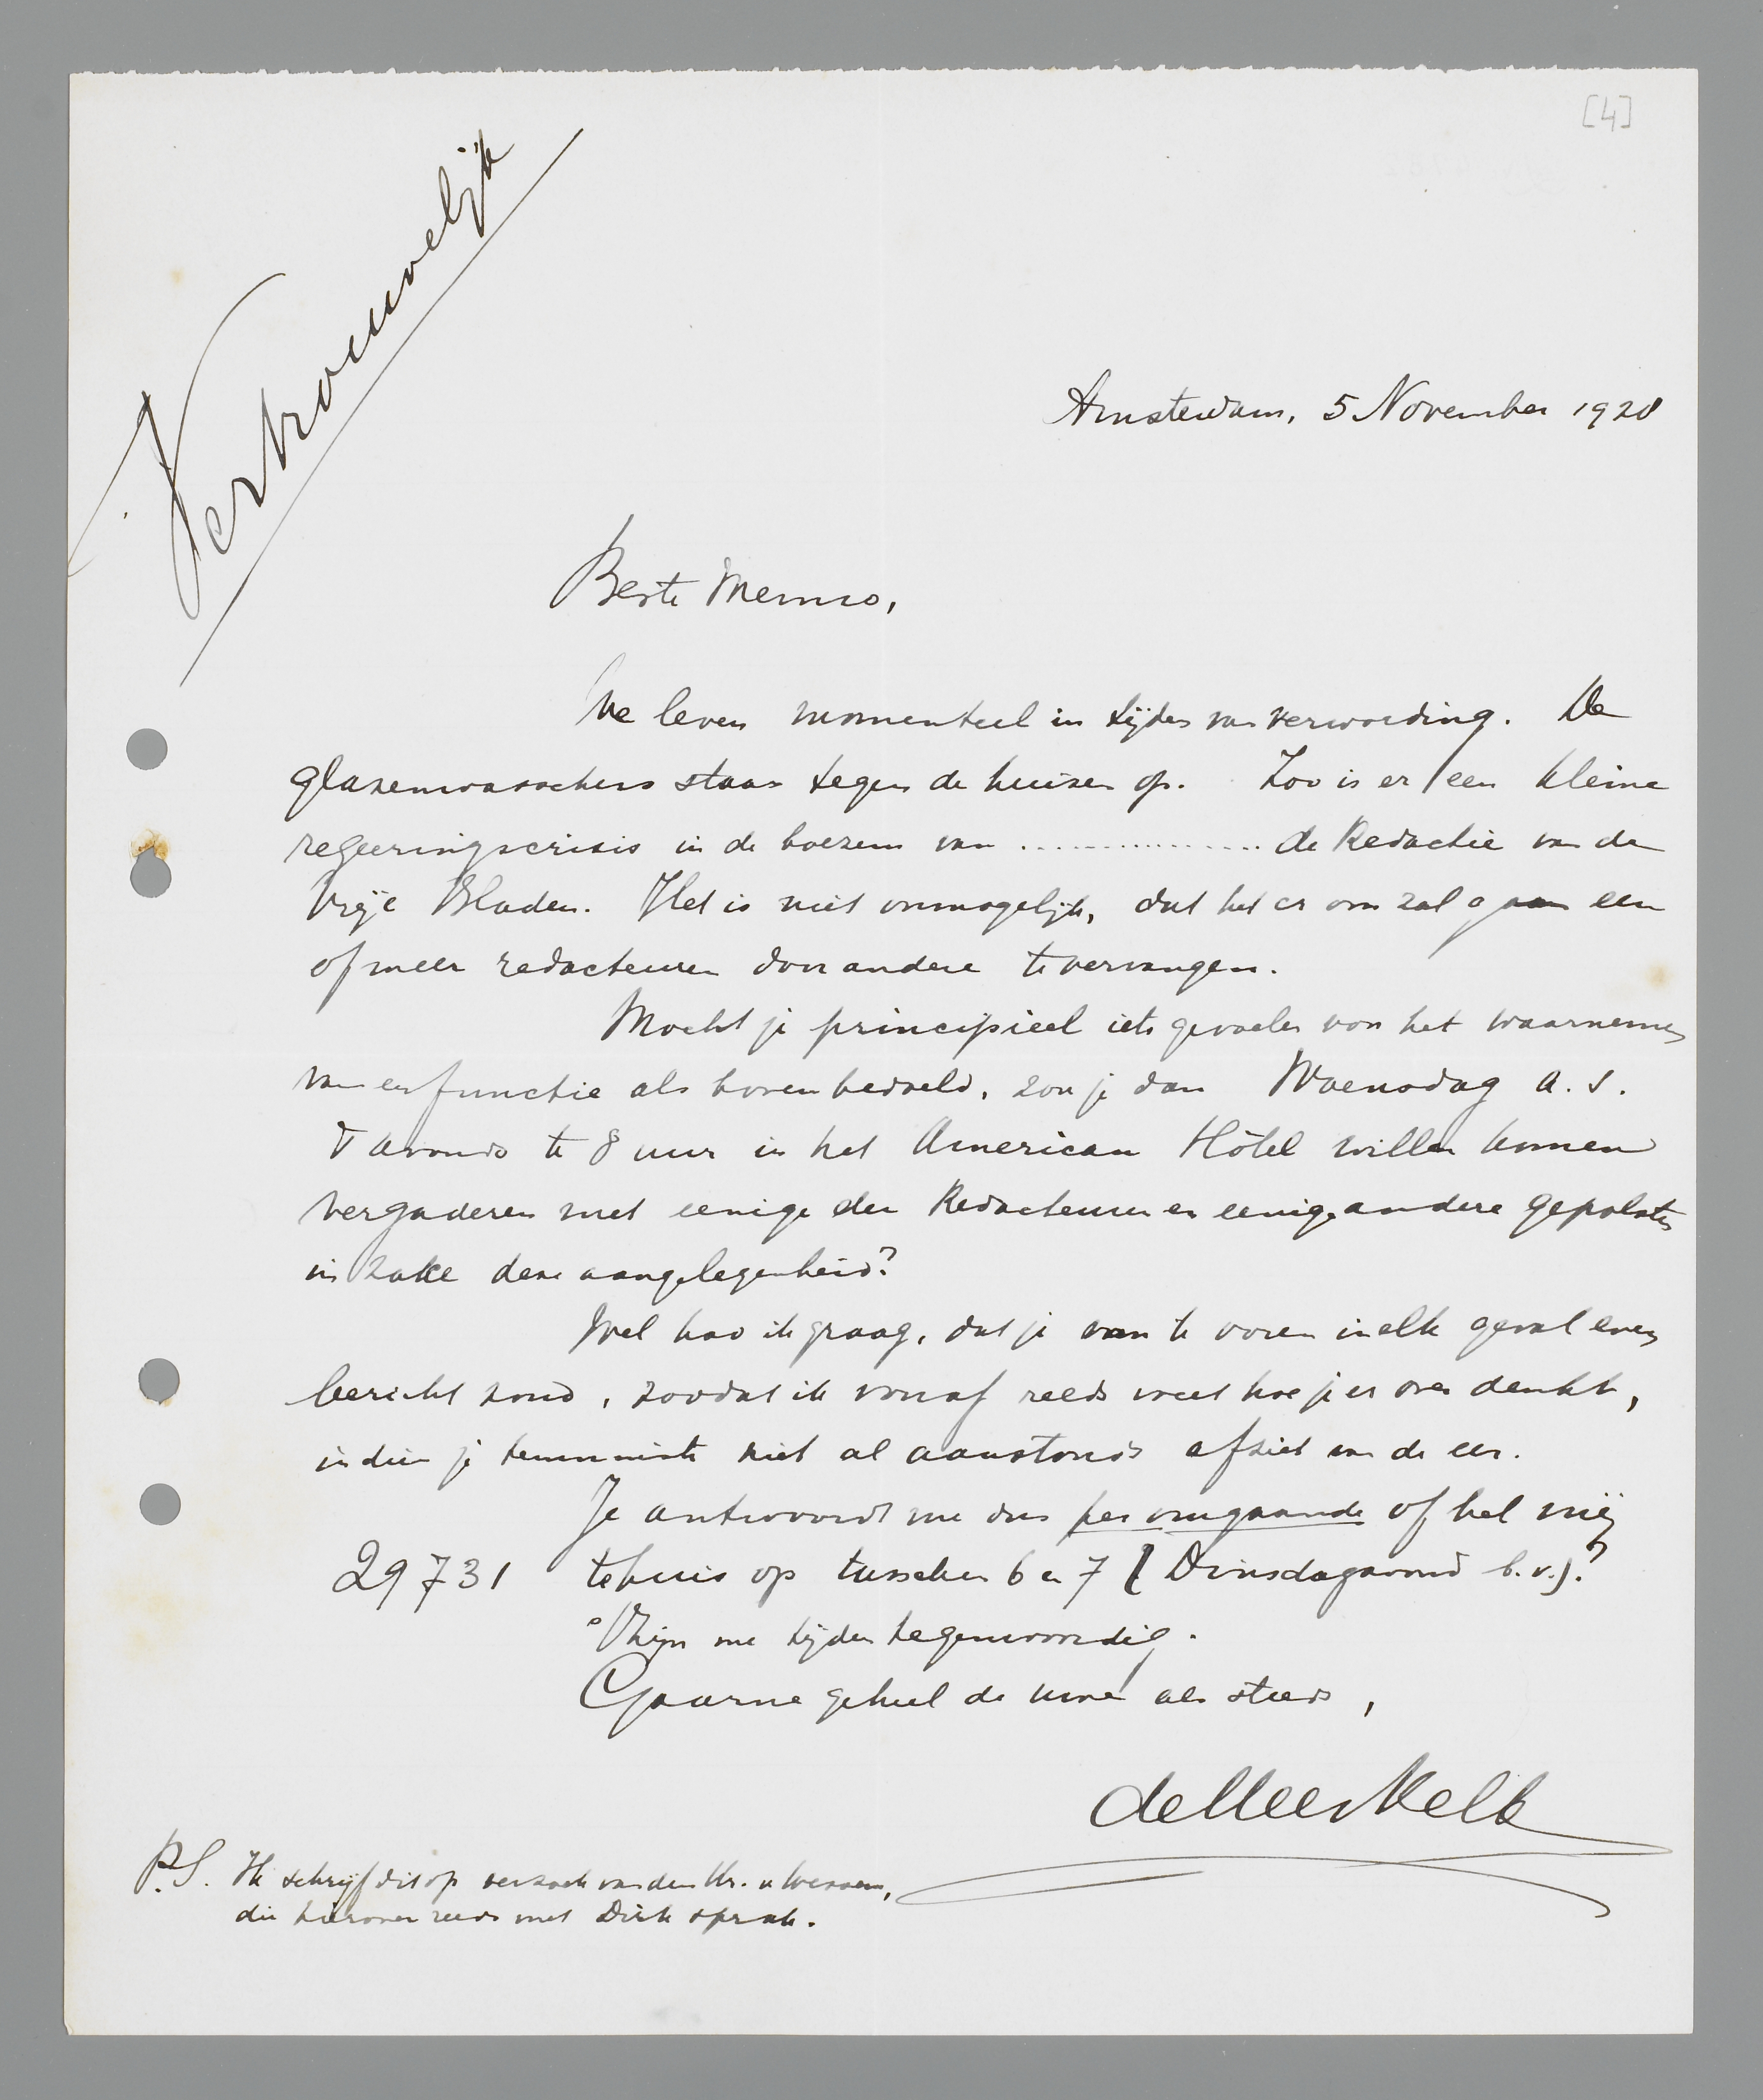 [4]
Vertrouwelijk
Amsterdam, 5 November 1928
Beste Menno,
We leven momenteel in tijden van verwording. De
glazenwasschers staan tegen de huizen op. Zoo is er een kleine
regeeringscrisis in de boezem van ................ de Redactie van de
Vrije Bladen. Het is niet onmogelijk, dat het er om zal gaan een
of meer redacteuren door andere te vervangen.
Mocht je principieel iets gevoelen voor het waarnemen
van een functie als bovenbedoeld, zou je dan Woensdag a.s.
's avonds te 8 uur in het American Hôtel willen komen
vergaderen met eenige der Redacteuren en eenige andere gepolsten
in zake deze aangelegenheid?
Wel had ik graag, dat je van te voren in elk geval even
bericht zond, zoodat ik vooraf reeds weet hoe je er over denkt,
indien je tenminste niet al aanstonds afziet van de eer.
Je antwoordt me dus per omgaande of bel mij
29731 tehuis op tusschen 6 en 7 (Dinsdagavond b.v.)?
't Zijn me tijden tegenwoordig.
Gaarne geheel de uwe als steeds,
de Heer Kelk
P.S. Ik schrijf dit op verzoek van den Hr. v Wessem,
die hierover reeds met Dirk sprak.